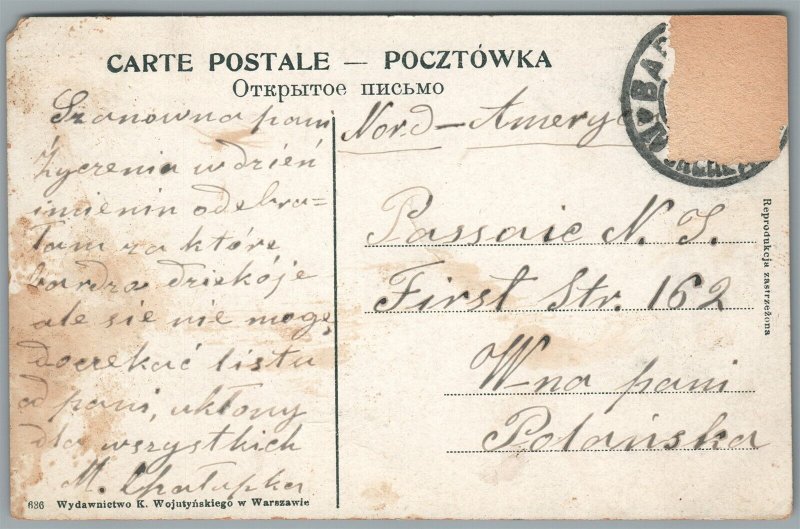 CARTE POSTALE — POCZTÓWKA
Открытое письмо
Szanowna pani
życzenia w dzień
imienin odebra=
łam za które
bardzo dziekóje
ale sie nie mogę
doczekać listu
od pani, ukłony
dla wszystkich
M. Chałupka
Nord-Ameryc
Passaic N. J.
First Str. 162
W-na pani
Polańska
Reprodukcja zastrzeżona
636 Wydawnictwo K. Wojutyńskiego w Warszawie